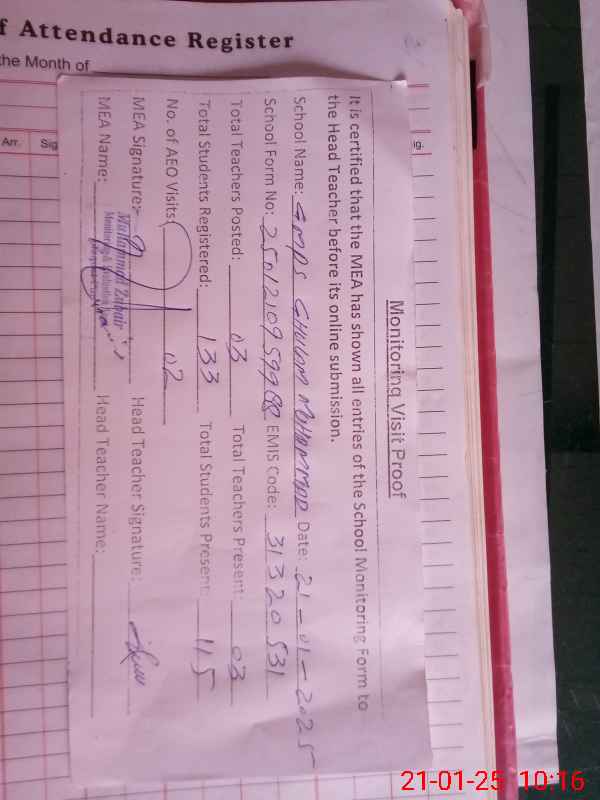 f Attendance Register
the Month of
Arr. Sig
ig.
Monitoring Visit Proof
It is certified that the MEA has shown all entries of the School Monitoring Form to
the Head Teacher before its online submission.
School Name: GMPS GHULAM MUHAMMAD Date: 21-01-2025
School Form No: EMIS Code: 31320531
Total Teachers Posted: 03 Total Teachers Present: 03
Total Students Registered: 133 Total Students Present: 115
No. of AEO Visits: 02
MEA Signature: Head Teacher Signature:
MEA Name: Muhammad Zubair Head Teacher Name:
Monitoring & Evaluation
21-01-25 10:16